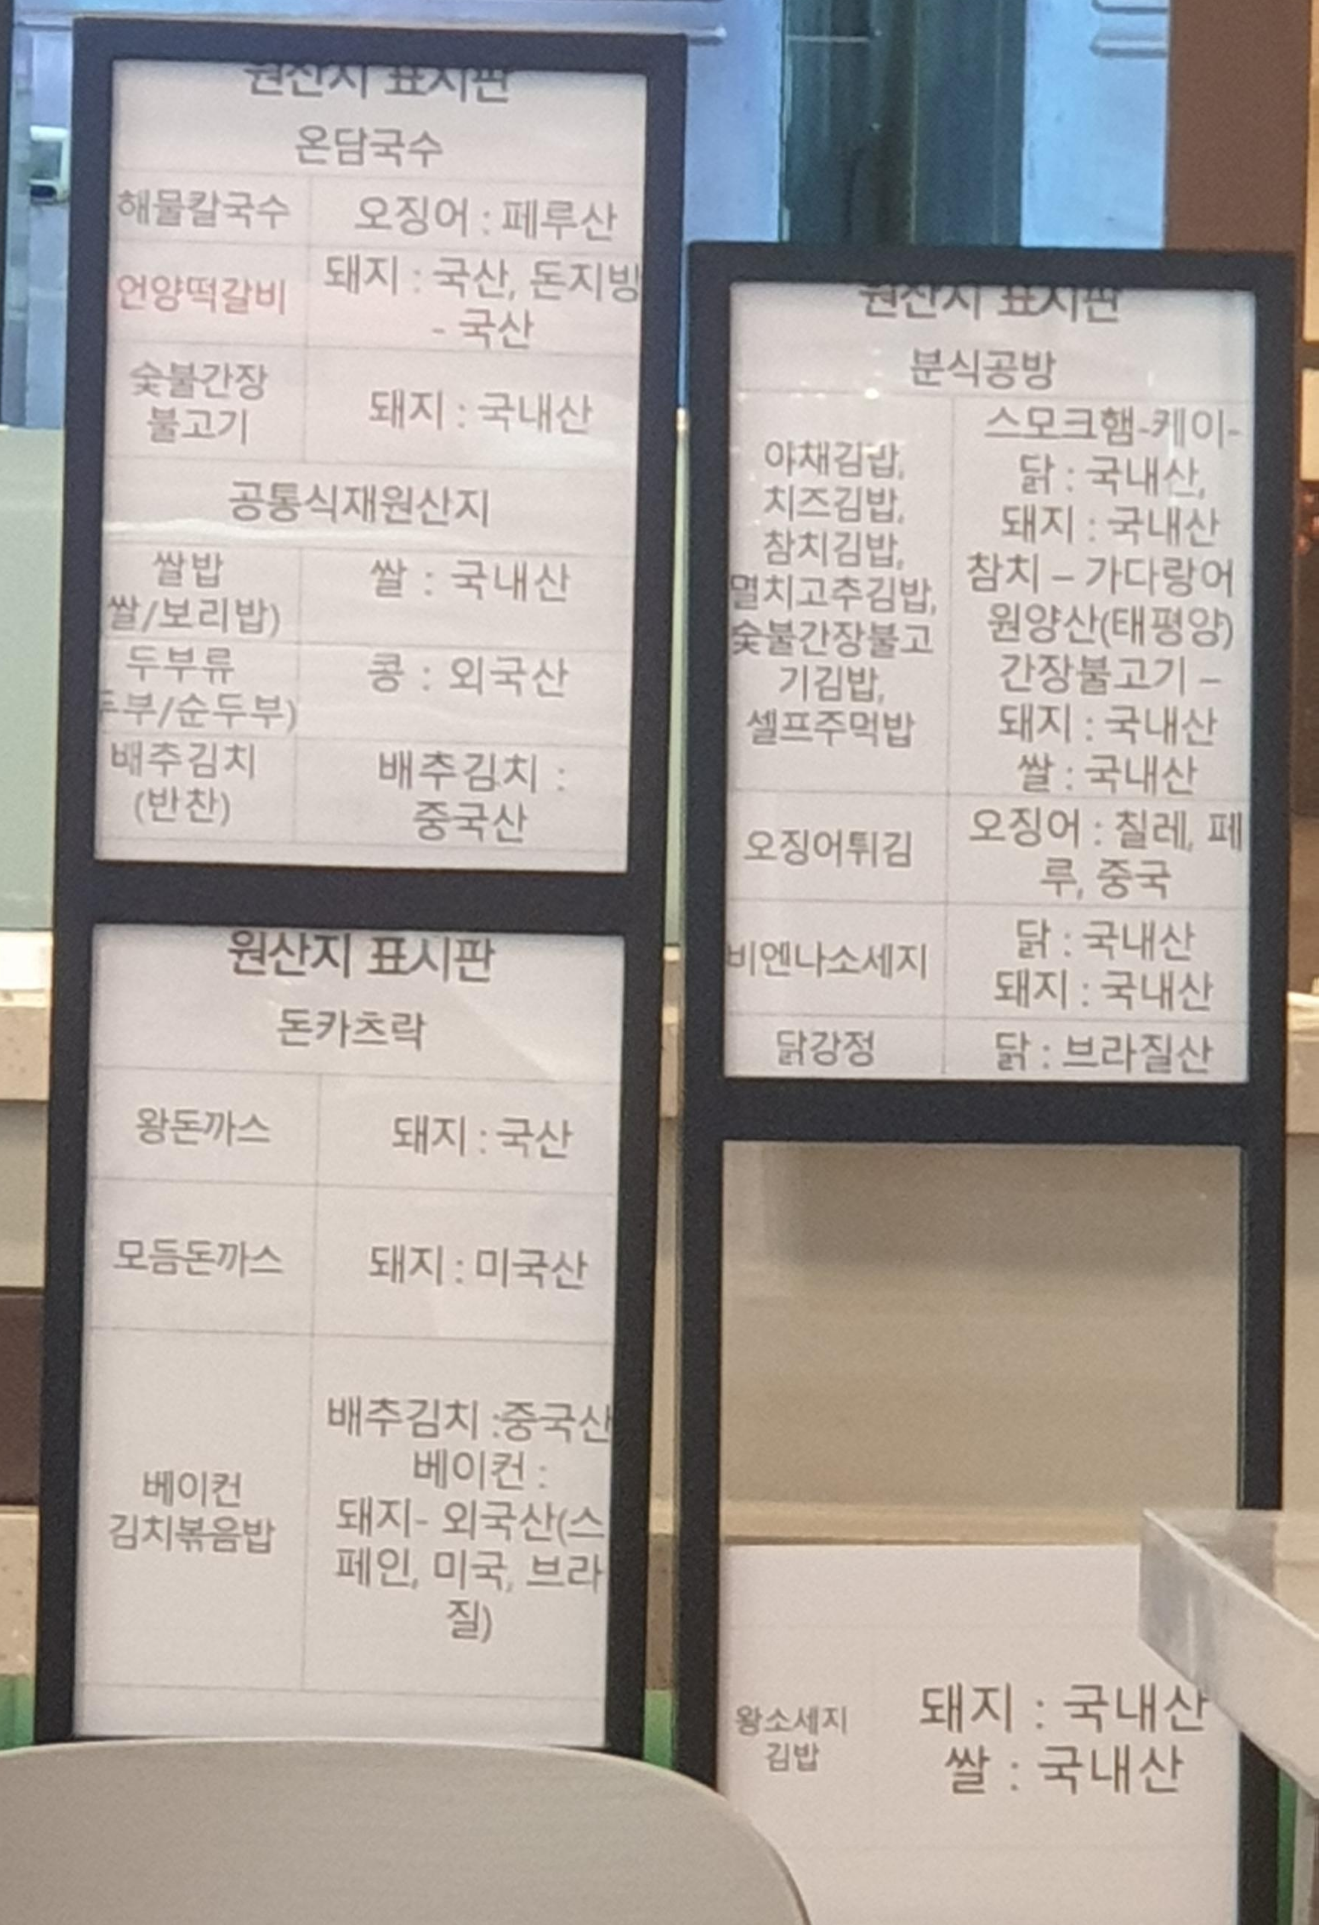 원산지 표시판
온담국수
해물칼국수 오징어 : 페루산
언양떡갈비 돼지 : 국산, 돈지방
- 국산
숯불간장
불고기
돼지 : 국내산
공통식재원산지
쌀밥
쌀/보리밥)
쌀 : 국내산
두부류
두부/순두부)
콩 : 외국산
배추김치
(반찬)
배추김치 :
중국산
원산지 표시판
돈카츠락
왕돈까스 돼지 : 국산
모듬돈까스 돼지 : 미국산
베이컨
김치볶음밥
배추김치 :중국산
베이컨 :
돼지- 외국산(스
페인, 미국, 브라
질)
원산지 표시판
분식공방
야채김밥,
치즈김밥,
참치김밥,
멸치고추김밥,
숯불간장불고
기김밥,
셀프주먹밥
스모크햄-케이-
닭 : 국내산,
돼지 : 국내산
참치 – 가다랑어
원양산(태평양)
간장불고기 –
돼지 : 국내산
쌀 : 국내산
오징어튀김
오징어 : 칠레, 페
루, 중국
비엔나소세지
닭 : 국내산
돼지 : 국내산
닭강정 닭 : 브라질산
왕소세지
김밥
돼지 : 국내산
쌀 : 국내산